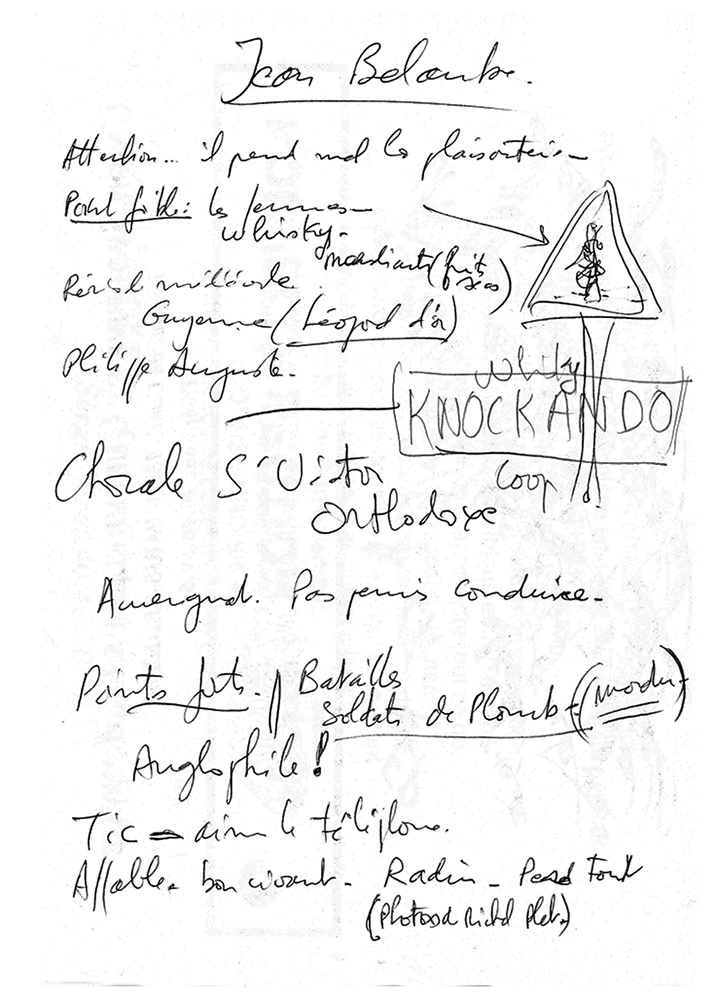 Jean
Attention... il prend mal les plaisanteries
Point faible: les femmes
whisky.
mendiants (fruits secs)
Période médiévale.
Guyenne (Léopard d'or)
Philippe Auguste.
Whisky
KNOCKANDO
Coop
Chorale St Victor
Orthodoxe
Auvergnat. Pas permis conduire.
Points forts. Batailles
Soldats de Plomb
Anglophile!
Tic = aime le téléphone.
Affable. bon vivant. Radin - Perd tout
(Photos